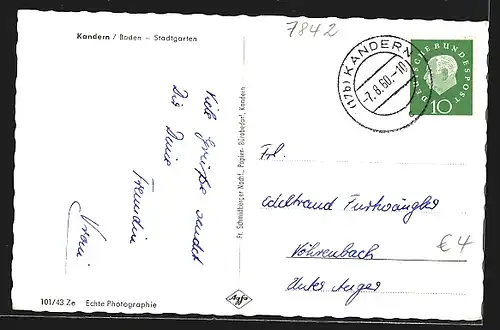 Kandern / Baden – Stadtgarten
7842
(17b) KANDERN
-7.8.60.-10
DEUTSCHE BUNDESPOST
10
Viele Grüße sendet
Dir Deine
Freundin
Vroni
Fr. Schmidburger Nachf., Papier- Bürobedarf, Kandern
Frl.
Edeltraud Furtwängler
Vöhrenbach
Unter Anger
€ 4
101/43 Ze Echte Photographie
Agfa